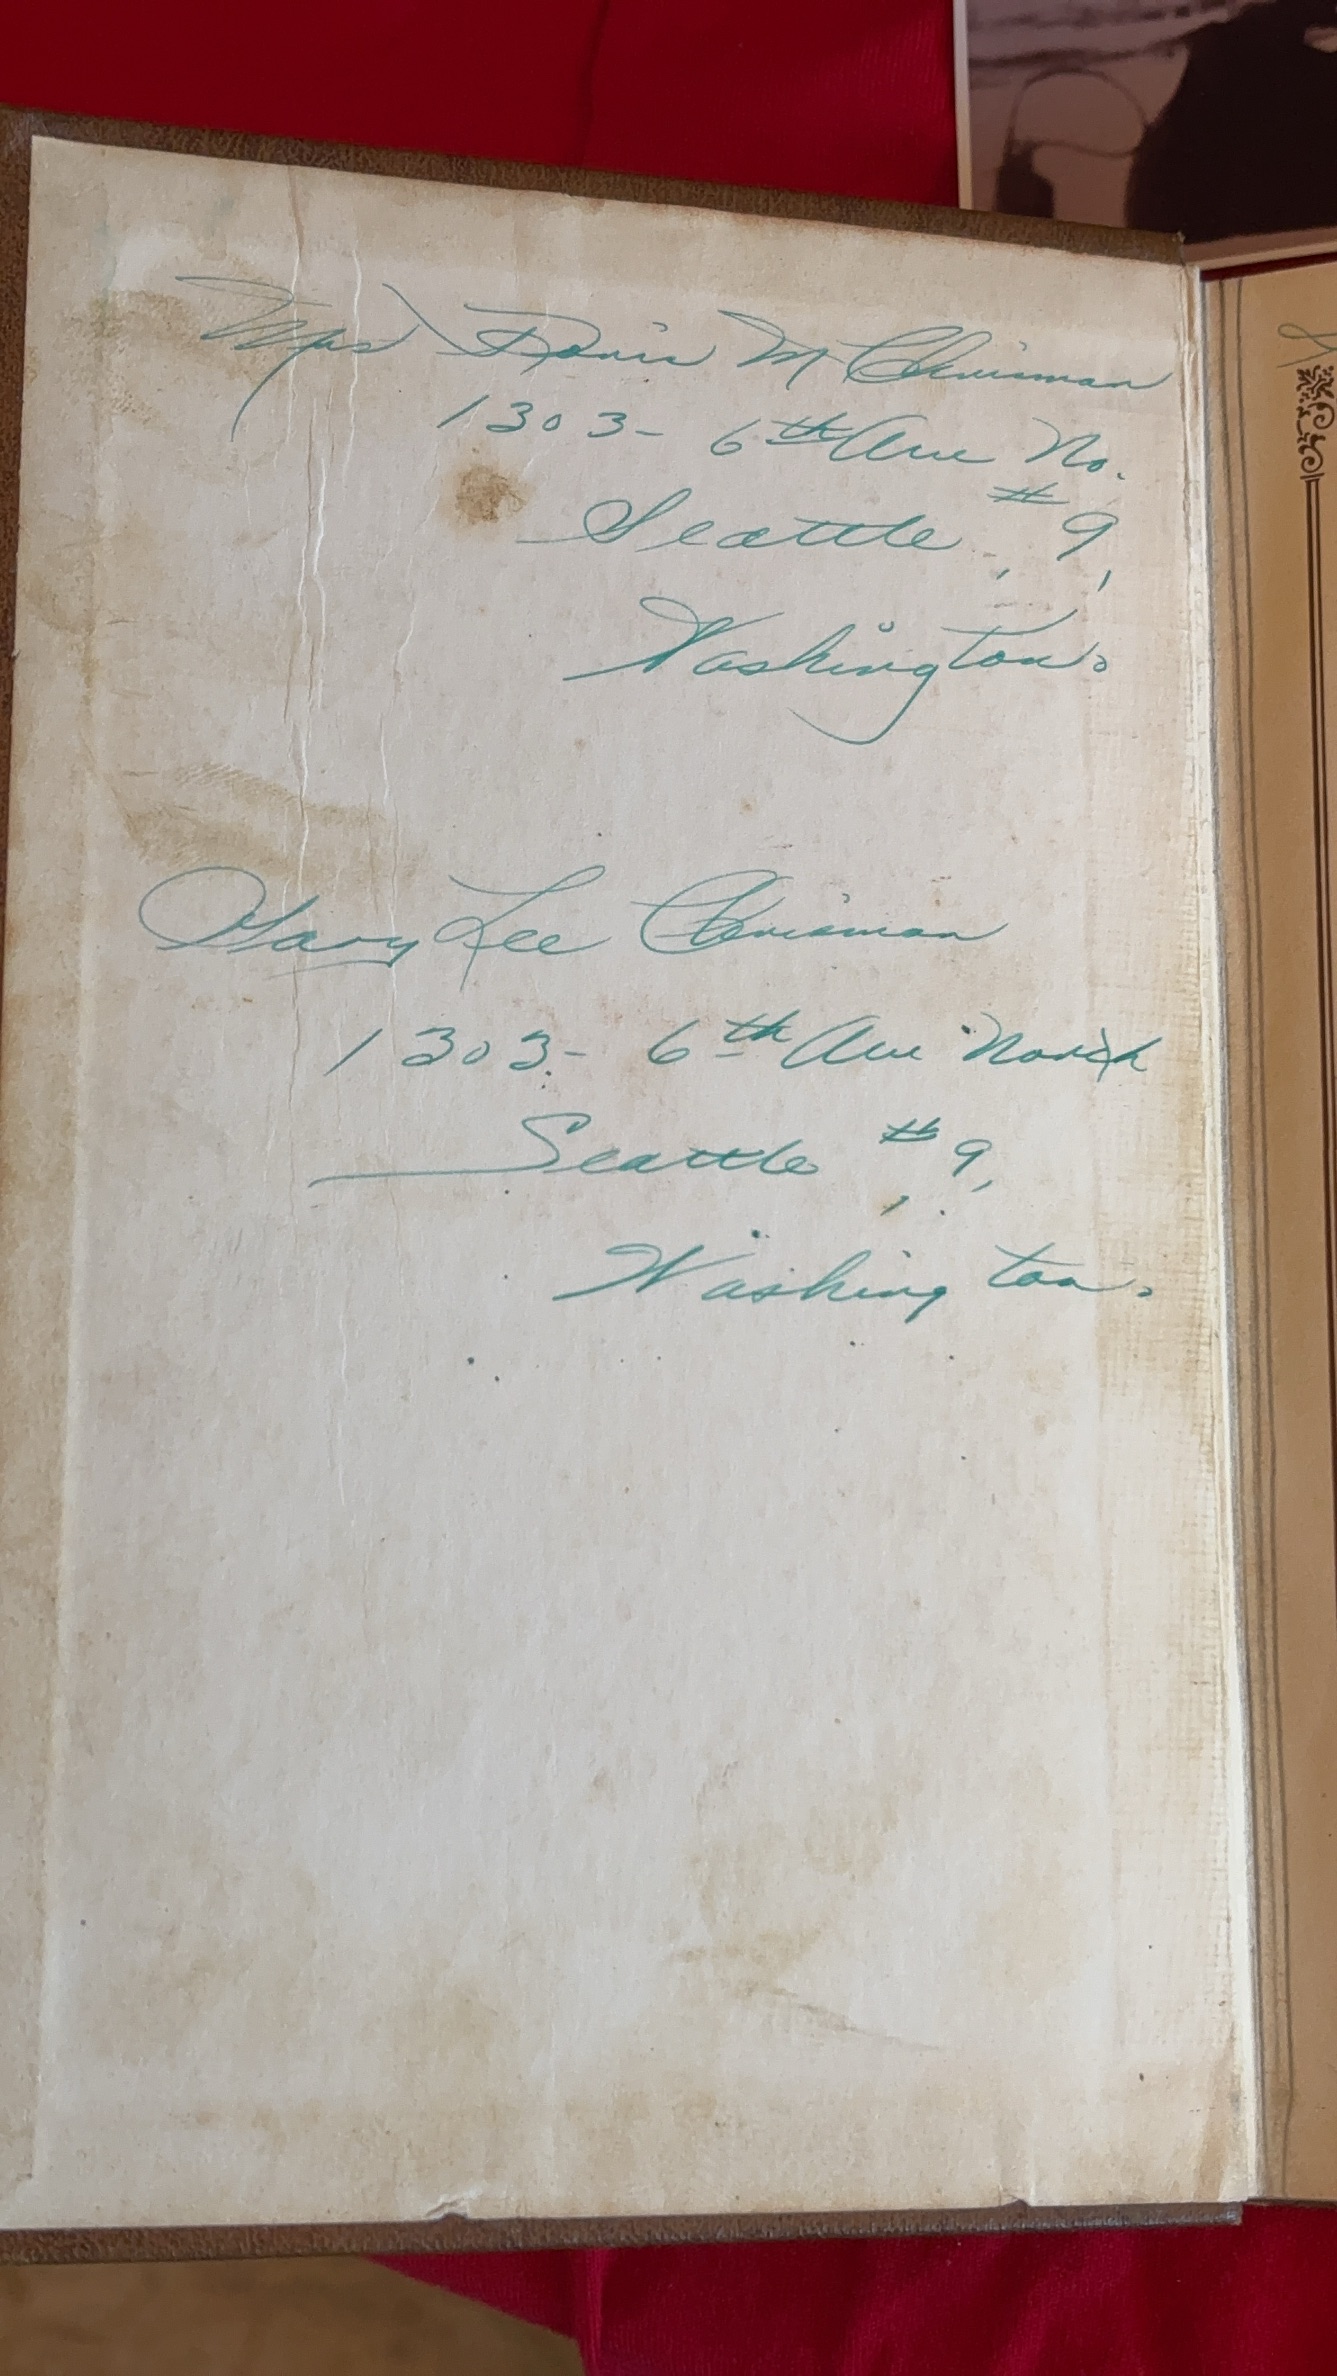 Mrs Doris M Chrisman
1303- 6th Ave No.
Seattle, #9,
Washington.
Gary Lee Chrisman
1303- 6th Ave North
Seattle, #9,
Washington.